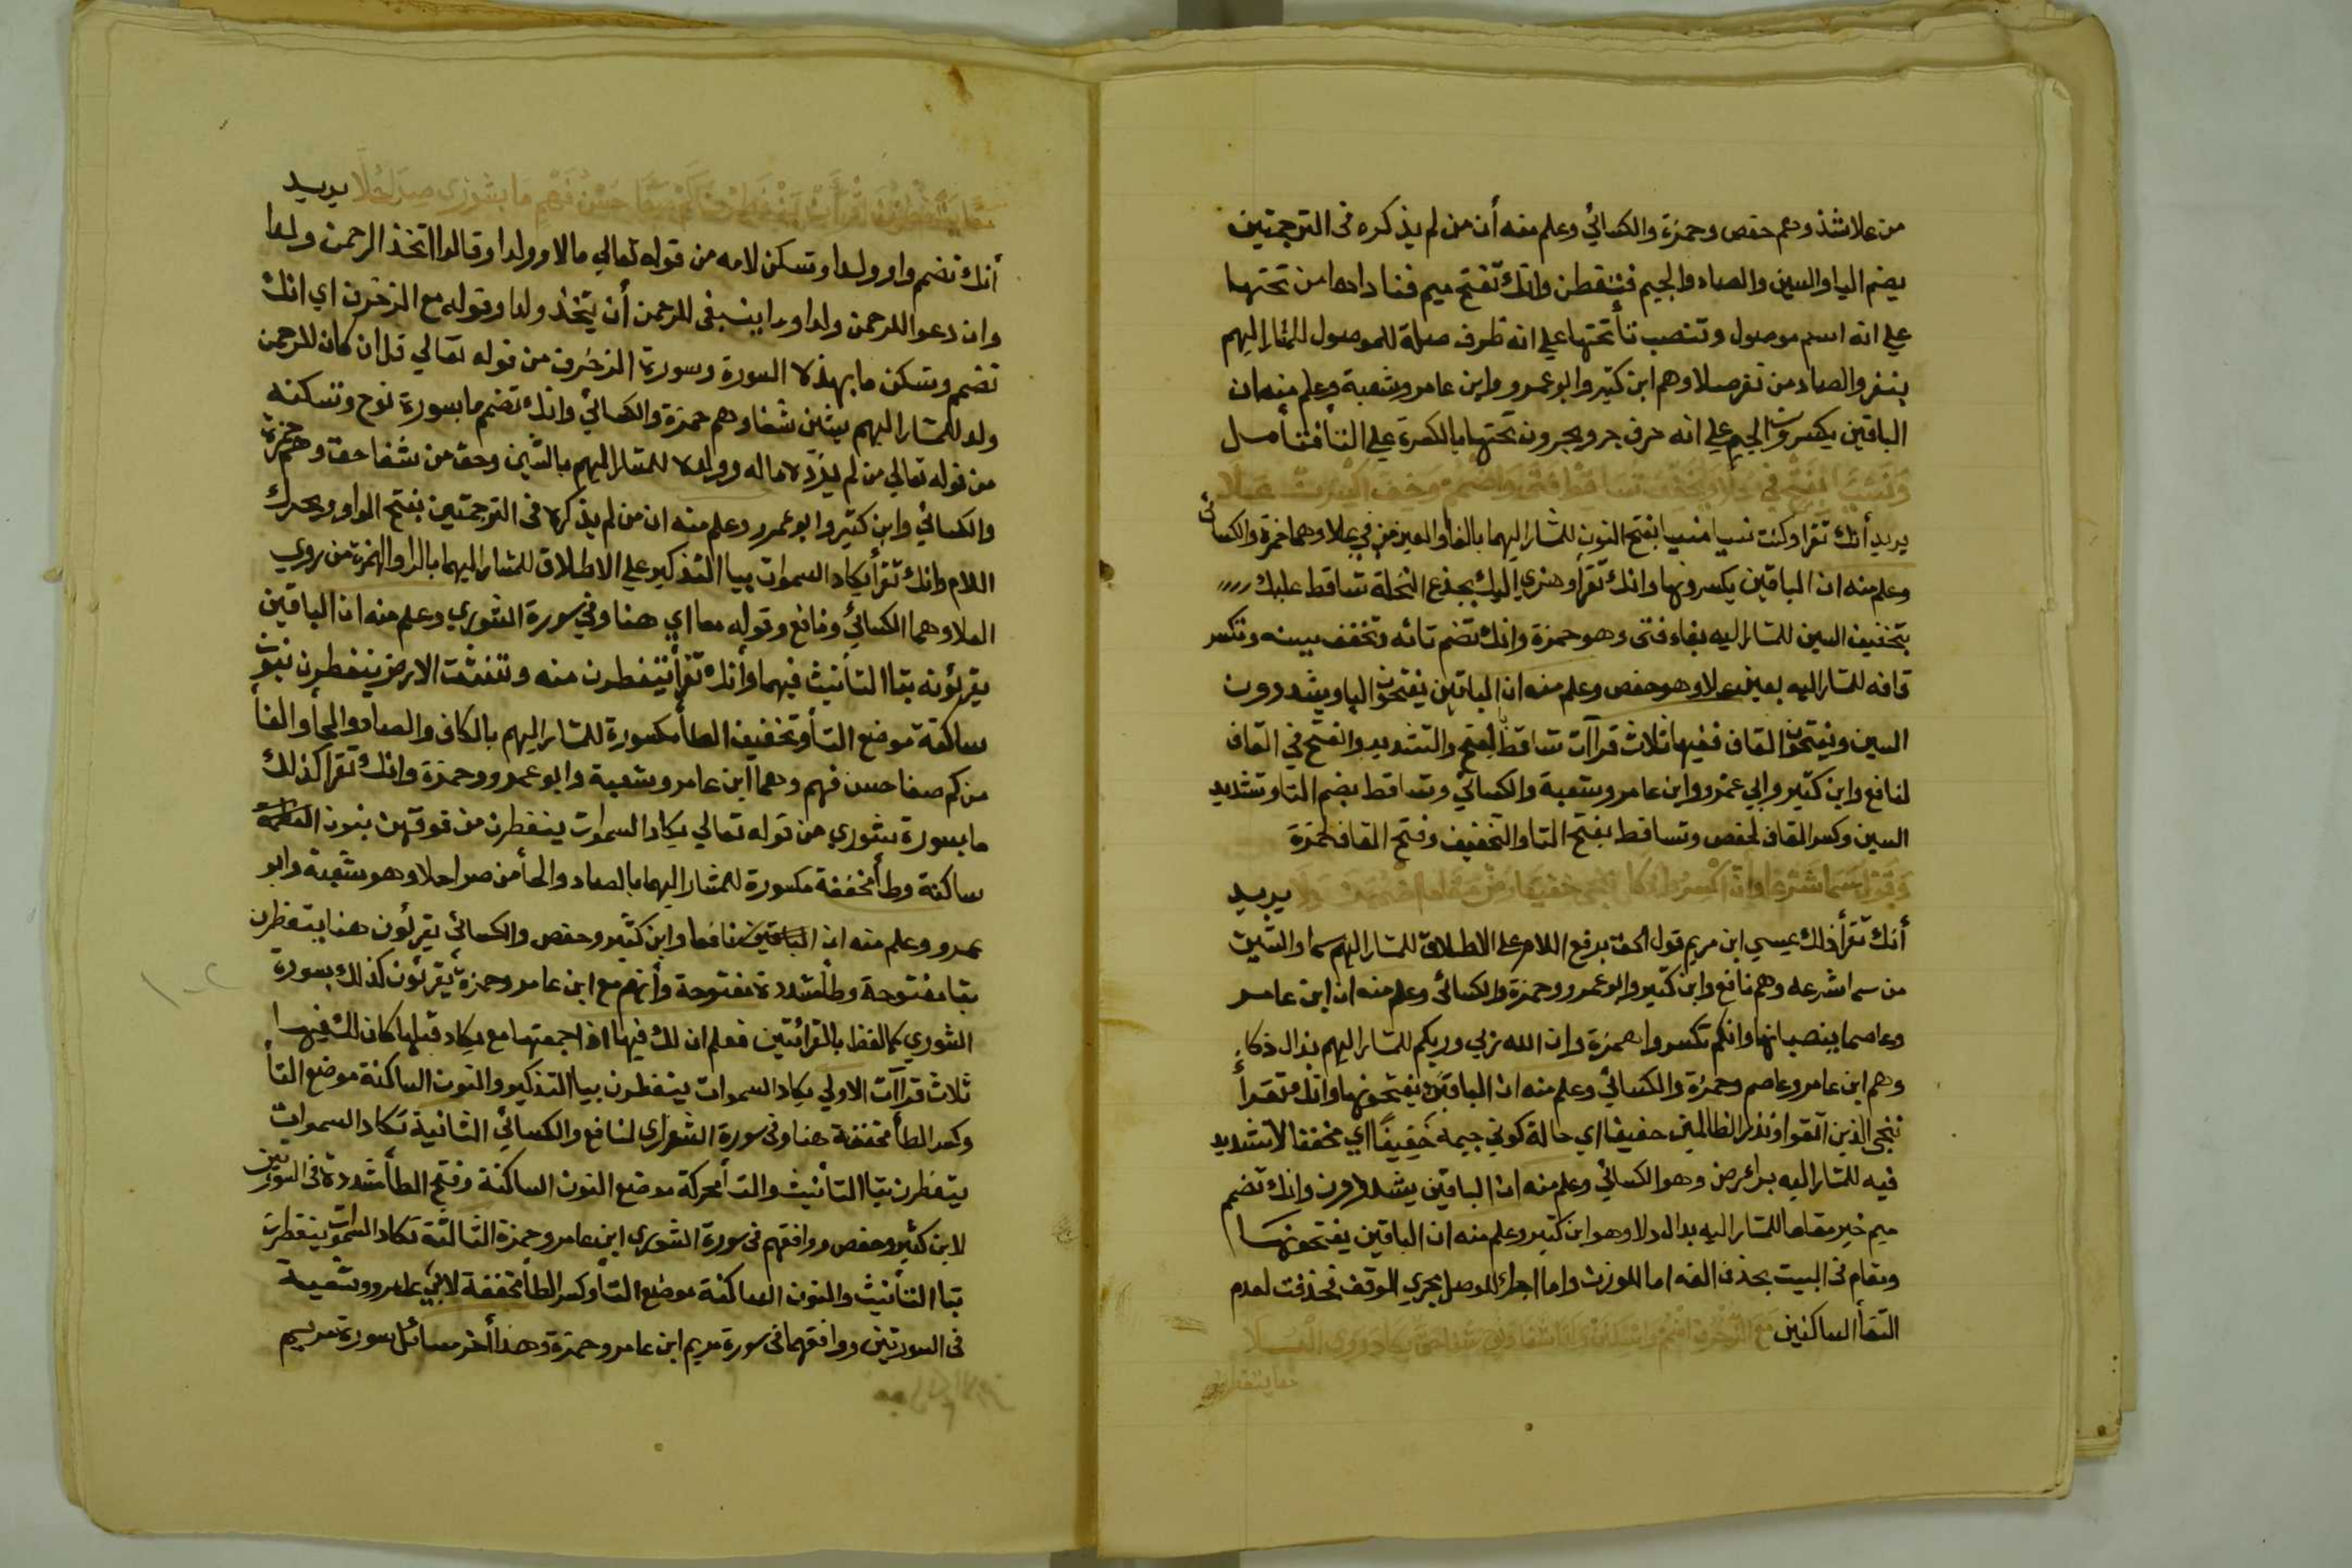 من علا شذ وهم حفص وحمزة والكسائي وعلم منه أن من لم يذكره فى الترجمتين
يضم اليا والسين والصاد والجيم فتفطن وانك تفتح ميم فناداها من تحتها
علي انه اسم موصول وتنصب تأ تحتها علي انه ظرف صلة للموصول للمشار اليهم
بنفر والصاد من نفر صلا وهم ابن كثير وابو عمرو وابن عامر وشعبة وعلم منه ان
الباقين يكسرون الجيم علي انه حرف جر ويجرون تحتها بالكسرة علي التأ فتأمل
يريد أنك تقرا وكنت نسيا منسيا بفتح النون للمشار اليهما بالفا والعين من في علا وهما حمزة والكسائى
وعلم منه ان الباقين يكسرونها وانك تقرأ وهزي اليك بجذع النخلة تساقط عليك
بتخفيف السين للمشار اليه بفاء فتى وهو حمزة وانك تضم تائه وتخفف سينه وتكسر
قافه للمشار اليه بعين علا وهو حفص وعلم منه ان الباقين يفتحون اليا ويشددون
السين ويفتحون القاف ففيها ثلاث قراآت تساقط بالفتح والتشديد والفتح في القاف
لنافع وابن كثير وابي عمرو وابن عامر وشعبة والكسائي وتساقط بضم التا وتشديد
السين وكسر القاف لحفص وتساقط بفتح التا والتخفيف وفتح القاف لحمزة
يريد
أنك تقرأ ذلك عيسي ابن مريم قول الحق برفع اللام على الاطلاق للمشار اليهم بسما والشين
من سما شرعه وهم نافع وابن كثير وابو عمرو وحمزة والكسائى وعلم منه ان ابن عامر
وعاصما ينصبانها وانكم تكسروا همزة وان الله ربي وربكم للمشار اليهم بذال ذكاء
وهم ابن عامر وعاصم وحمزة والكسائي وعلم منه ان الباقين يفتحونها وانك تقرأ
ننجى الذين اتقوا ونذر الظالمين خفيفا اي حالة كوني جيمه خفيفًا اي مخففا لا تشديد
فيه للمشار اليه برا رض وهو الكسائي وعلم منه ان الباقين يشددون وانك تضم
ميم خير مقاما للمشار اليه بدال دلا وهو ابن كثير وعلم منه ان الباقين يفتحونها
ومقام فى البيت بحذف الفه اما للوزن واما اجراء للوصل مجري الوقف فحذفت لعدم
التقأ الساكنين
يريد
أنك تضم واو ولدا وتسكن لامه من قوله تعالي مالا وولدا وقالوا اتخذ الرحمن ولدا
وان دعوا للرحمن ولدا وما ينبغى للرحمن أن يتخذ ولدا وقوله مع الزخرف اي انك
تضم وتسكن ما بهذه السورة وسورة الزخرف من قوله تعالي قل ان كان للرحمن
ولد للمشار اليهم بشين شفا وهم حمزة والكسائي وانك تضم ما بسورة نوح وتسكنه
من قوله تعالي من لم يزده ماله وولده للمشار اليهم بالشين وحق من شفا حق وهم حمزة
والكسائي وابن كثير وابو عمرو وعلم منه ان من لم يذكره فى الترجمتين بفتح الواو ويحرك
اللام وانك تقرأ يكاد السموات بيا التذكير علي الاطلاق للمشار اليهما بالرا والهمزة من روي
العلا وهما الكسائي ونافع وقوله معا اي هنا وفي سورة الشوري وعلم منه ان الباقين
يقرئونه بتا التأنيث فيهما وأنك تقرأ يتفطرن منه وتنشق الارض ينفطرن بنون
ساكنة موضع التأ وتخفيف الطأ مكسورة للمشار اليهم بالكاف والصاد والحأ والفأ
من كم صفا حسن فهم وهما ابن عامر وشعبة وابو عمرو وحمزة وانك تقرا كذلك
ما بسورة شوري من قوله تعالي يكاد السموات ينفطرن من فوقهن بنون
ساكنة وطأ مخففة مكسورة للمشار اليهما بالصاد والحأ من صرا حلا وهو شعبة وابو
عمرو وعلم منه ان نافعا وابن كثير وحفص والكسائي يقرئون هنا يتفطرن
بتا مفتوحة وطا مشددة مفتوحة وأنهم مع ابن عامر وحمزة يقرئون كذلك بسورة
الشوري كما لفظ بالقرائتين فعلم ان لك فيها اذا جمعتها مع يكاد قبلها كان لك فيها
ثلاث قراآت الاولي يكاد السموات يتفطرن بيا التذكير والنون الساكنة موضع التأ
وكسر الطأ مخففة هنا وفى سورة الشوري لنافع والكسائي الثانية تكاد السموات
يتفطرن بتا التأنيث والتا محركة موضع النون الساكنة وفتح الطأ مشددة فى السورتين
لابن كثير وحفص ووافقهم فى سورة الشوري ابن عامر وحمزة الثالثة تكاد السموات ينفطرن
بتا التأنيث والنون الساكنة موضع التأ وكسر الطأ مخففة لابي عمرو وشعبة
فى السورتين ووافقهما فى سورة مريم ابن عامر وحمزة وهذا أخر مسائل سورة مريم